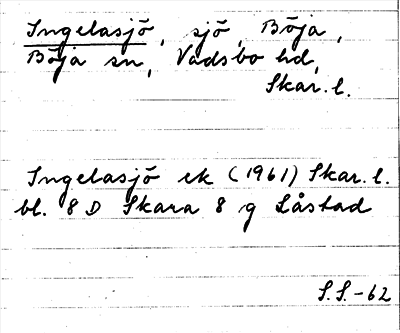 Ingelasjö, sjö, Böja,
Böja sn, Vadsbo hd,
Skar. l.
Ingelasjö ek (1961) Skar. l.
bl. 8 D Skara 8 g Låstad
S.S.-62